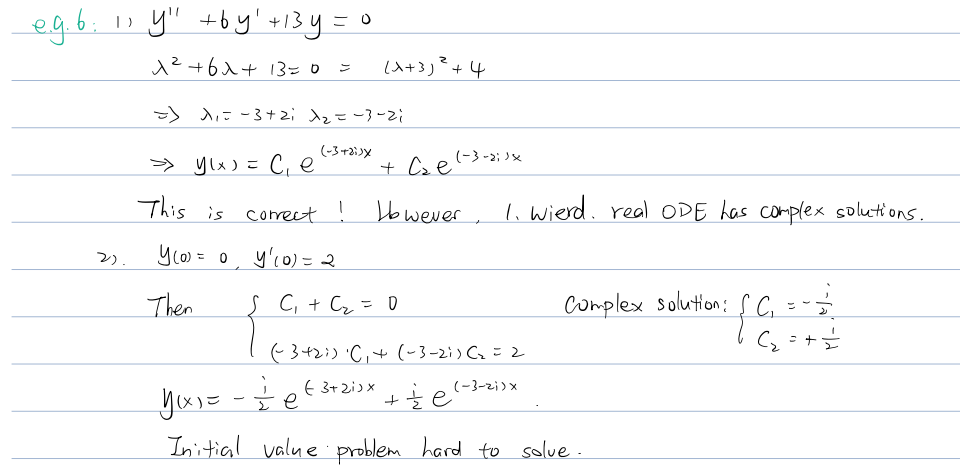 e.g. 6: 1) y'' + 6y' + 13y = 0
λ² + 6λ + 13 = 0 = (λ+3)² + 4
=> λ₁ = -3+2i λ₂ = -3-2i
=> y(x) = C₁ e^{(-3+2i)x} + C₂ e^{(-3-2i)x}
This is correct ! However, 1. wierd. real ODE has complex solutions.
2). y(0) = 0, y'(0) = 2
Then { C₁ + C₂ = 0 complex solution: { C₁ = -i/2
C₂ = +i/2
(-3+2i)·C₁ + (-3-2i)C₂ = 2
y(x) = -i/2 e^{(-3+2i)x} + i/2 e^{(-3-2i)x}.
Initial value problem hard to solve.